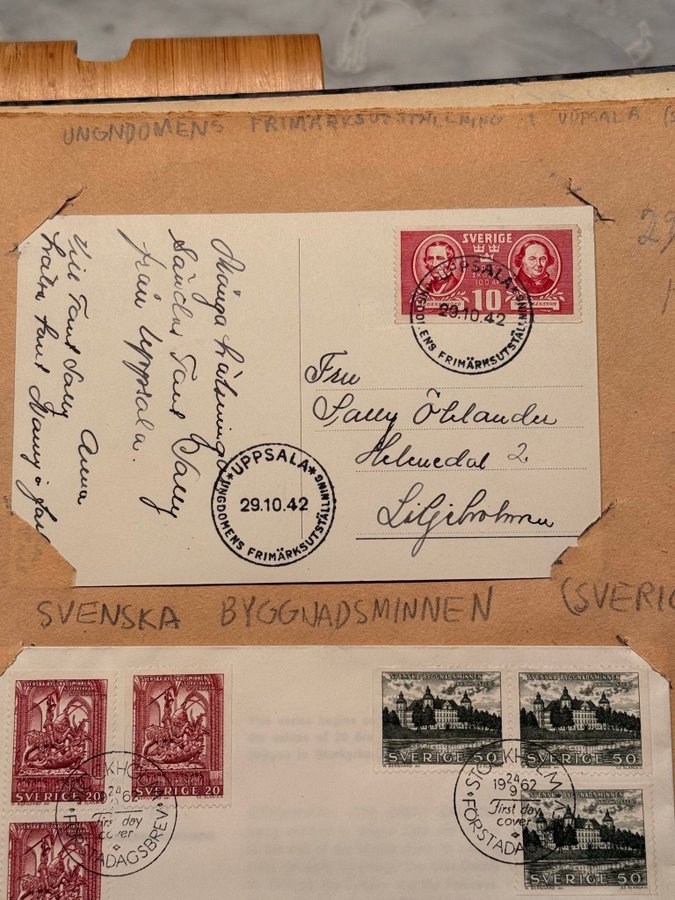 UNGNDOMENS FRIMÄRKSUTSTÄLLNING I UPPSALA
29
1
SVERIGE
SK
100 ÅR
10
UPPSALA
29.10.42
UNGDOMENS FRIMÄRKSUTSTÄLLNING
Många hälsningar
Sändes Tant Sally
från Uppsala.
Till Tant Sally Anna
Fru
Sally Öhlander
Helenedal 2
Liljeholmen
UPPSALA
29.10.42
UNGDOMENS FRIMÄRKSUTSTÄLLNING
SVENSKA BYGGNADSMINNEN (SVERIG
SVENSKA BYGGNADSMINNEN
STORKYRKAN
SVERIGE 20
SVENSKA BYGGNADSMINNEN
STORKYRKAN
SVERIGE 20
STOCKHOLM
24
19 62
9
First day
cover
FÖRSTADAGSBREV
SVENSKA BYGGNADSMINNEN
SVERIGE 50
SVENSKA BYGGNADSMINNEN
SVERIGE 50
STOCKHOLM
24
19 62
9
First day
cover
FÖRSTADA
SVENSKA BYGGNADSMINNEN
SVERIGE 50